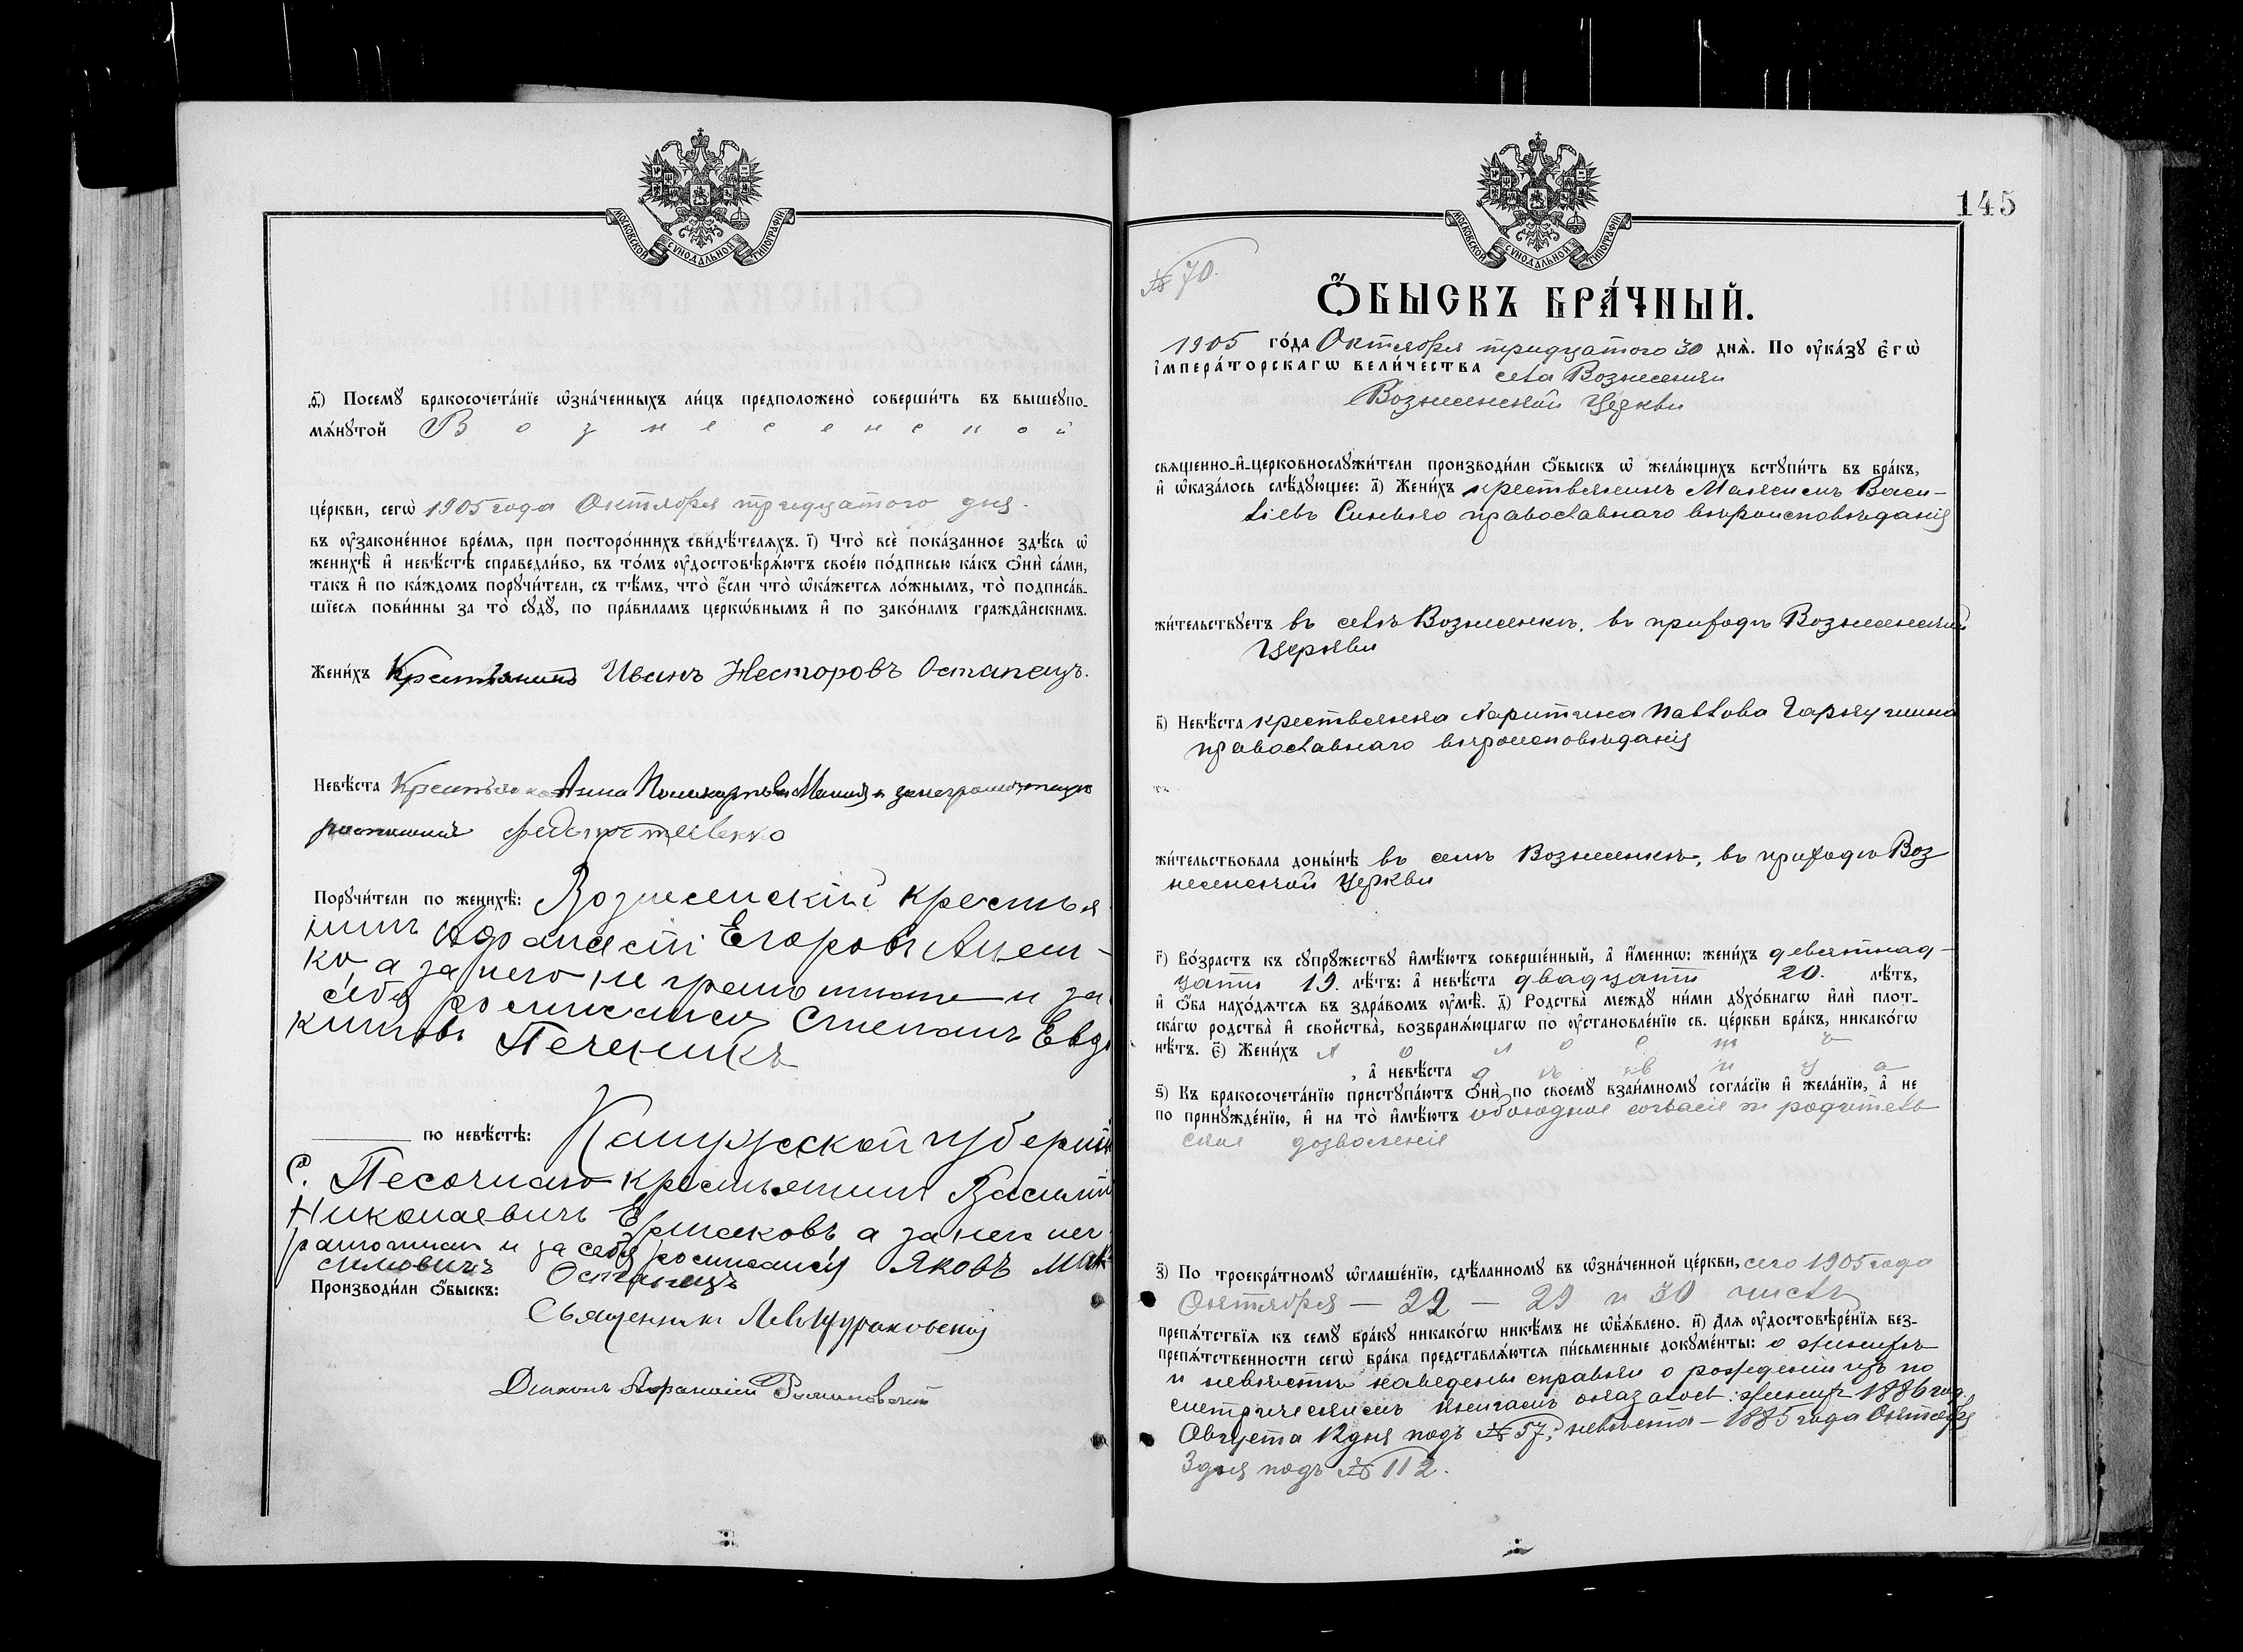 МОСКОВСКОЙ СѴНОДАЛЬНОЙ ТИПОГРАФІИ
ѳ҃) Посемꙋ бракосочета́нїе ѡ҆зна́ченныхъ ли́цъ предположено̀ соверши́ть въ вышеꙋпо-
мѧ́нꙋтой Вознесенской
це́ркви, сегѡ̀ 1905 года Октября тридцатого дня.
въ ѹ҆законе́нное вре́мѧ, при посторо́ннихъ свидѣ́телѧхъ. і҃) Что̀ всѐ пока́занное здѣ́сь ѡ҆
женихѣ̀ и҆ невѣ́стѣ справедли́во, въ то́мъ ѹ҆достовѣрѧ́ютъ свое́ю по́дписью ка́къ ѻ҆нѝ са́ми,
та́къ и҆ по ка́ждомъ порꙋчи́тели, съ тѣ́мъ, что̀ є҆́сли что̀ ѡ҆ка́жетсѧ ло́жнымъ, то̀ подписа́в-
шїесѧ пови́нны за то̀ сꙋдꙋ̀, по пра́виламъ церкѡ́внымъ и҆ по зако́намъ гражда̂нскимъ.
Жени́хъ Крестьянинъ Иванъ Несторовъ Остапецъ.
Невѣ́ста Крестьянка Анна
Порꙋчи́тели по женихѣ̀: Вознесенскій крестья
нинъ Афанасій Егоровъ
ко, а за него не грамотнаго и за
себя росписался Степанъ Евдо
кимовъ Печеникъ
по невѣ́стѣ: Калужской губерніи
С. Песочнаго крестьянинъ Василій
Николаевичъ Ермаковъ а за нег нег
рамотнаго и за себя росписался Яковъ Мак-
симовичъ Остапецъ
Производи́ли ѻ҆́быскъ:
Священникъ
Діаконъ Афанасій
МОСКОВСКОЙ СѴНОДАЛЬНОЙ ТИПОГРАФІИ
145
№ 70.
Ѻ҆́БЫСКЪ БРА́ЧНЫЙ.
1905 го́да Октября тридцатого 30 днѧ̀. По ѹ҆ка́зꙋ є҆гѡ̀
і҆мпера́торскагѡ вели́чества села Вознесенки
Вознесенской Церкви
свѧще́нно-и҆-церковнослꙋжи́тели производи́ли ѻ҆́быскъ ѡ҆ жела́ющихъ встꙋпи́ть въ бра́къ,
и҆ ѡ҆каза́лось слѣ́дꙋющее: а҃) Жени́хъ крестьянинъ Максимъ Васи-
ліевъ православнаго вѣроисповѣданія
жи́тельствꙋетъ въ селѣ Вознесенкѣ, въ приходѣ Вознесенской
Церкви
в҃) Невѣ́ста крестьянка Харитина Павлова
православнаго вѣроисповѣданія
жи́тельствовала доны́нѣ въ селѣ Вознесенкѣ, въ приходѣ Воз
несенской Церкви
г҃) Во́зрастъ къ сꙋпрꙋ́жествꙋ и҆мѣ́ютъ соверше́нный, а҆ и҆́менно: жени́хъ девятнад-
цать 19. лѣ́тъ: а҆ невѣ́ста двадцать 20. лѣ́тъ,
и҆ ѻ҆́ба нахо́дѧтсѧ въ здра́вомъ ѹ҆мѣ̀. д҃) Родства̀ междꙋ̀ ни́ми дꙋхо́внагѡ и҆лѝ плот-
ска́гѡ родства̀ и҆ сво́йства̀, возбранѧ́ющагѡ по ѹ҆становле́нїю св. це́ркви бра́къ, никако́гѡ
нѣ́тъ. є҃) Жени́хъ холостъ
, а҆ невѣ́ста дѣвица
ѕ҃) Къ бракосочета́нїю пристꙋпа́ютъ ѻ҆нѝ по своемꙋ̀ взаи́мномꙋ согла́сїю и҆ жела́нїю, а҆ не
по принꙋжде́нїю, и҆ на то̀ и҆мѣ́ютъ обоюдное согласіе и родитель
ское дозволеніе
з҃) По троекра́тномꙋ ѡ҆глаше́нїю, сдѣ́ланномꙋ въ ѡ҆зна́ченной це́ркви, сего 1905 года
Октября — 22 — 29 и 30 числъ
препѧ́тствїѧ къ семꙋ̀ бра́кꙋ никако́гѡ никѣ́мъ не ѡ҆бъѧ́влено. и҃) Длѧ ѹ҆достовѣре́нїѧ без-
препѧ́тственности сегѡ̀ бра́ка представлѧ́ютсѧ пи́сьменные докꙋме́нты: о женихѣ
и невѣстѣ наведены справки о рожденіи изъ по
метрическимъ книгамъ оказалось: женихъ 1886 год.
Августа 12 дня подъ № 57; невѣста — 1885 года Октября
3 дня подъ № 112.